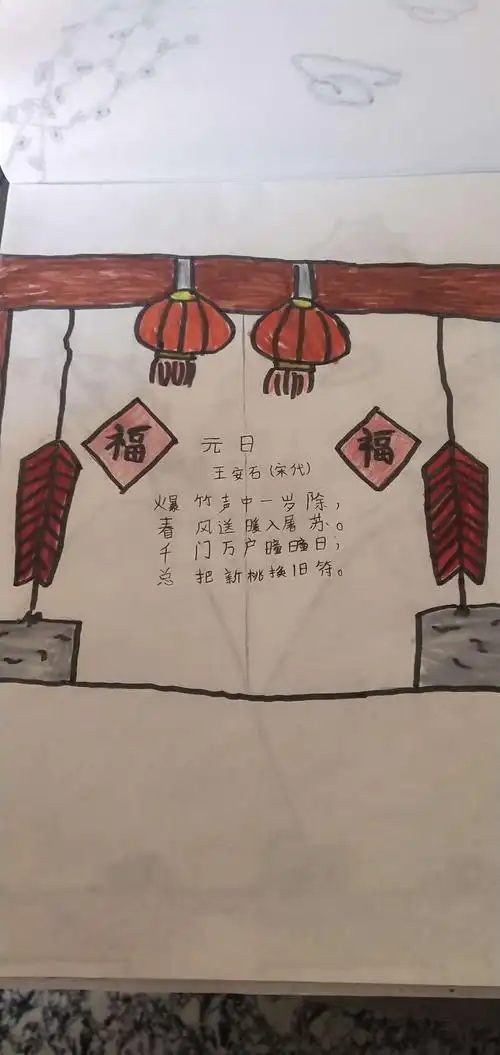 福
福
元日
王安石(宋代)
爆竹声中一岁除，
春风送暖入屠苏。
千门万户曈曈日；
总把新桃换旧符。